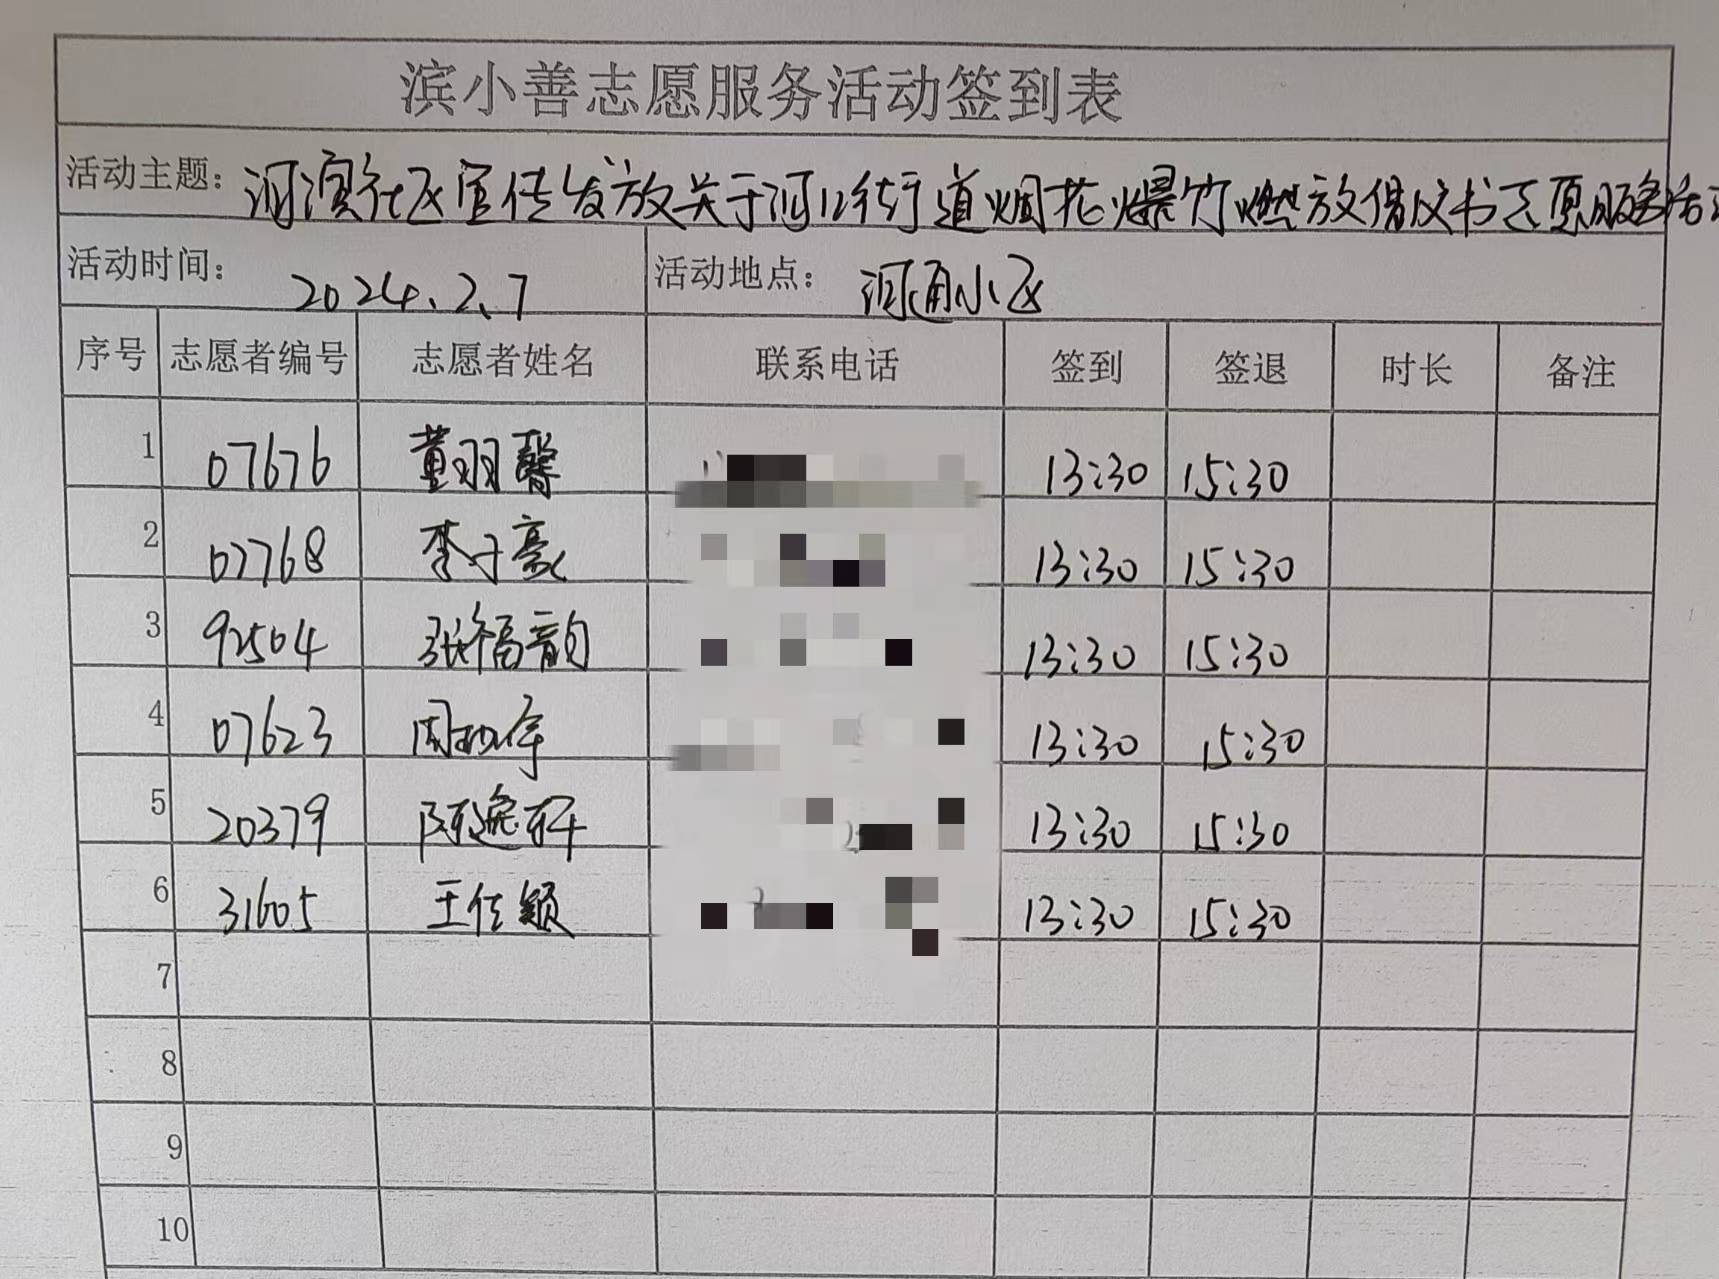 滨小善志愿服务活动签到表
活动主题: 河滨社区宣传发放关于河口街道烟花爆竹燃放倡议书志愿服务活动
活动时间: 2024.2.7 活动地点: 河通小区
序号 志愿者编号 志愿者姓名 联系电话 签到 签退 时长 备注
1 07676 董羽馨 13:30 15:30
2 07768 李子豪 13:30 15:30
3 92504 张福韵 13:30 15:30
4 07623 周 13:30 15:30
5 20379 陈逸轩 13:30 15:30
6 31605 王佳颖 13:30 15:30
7
8
9
10